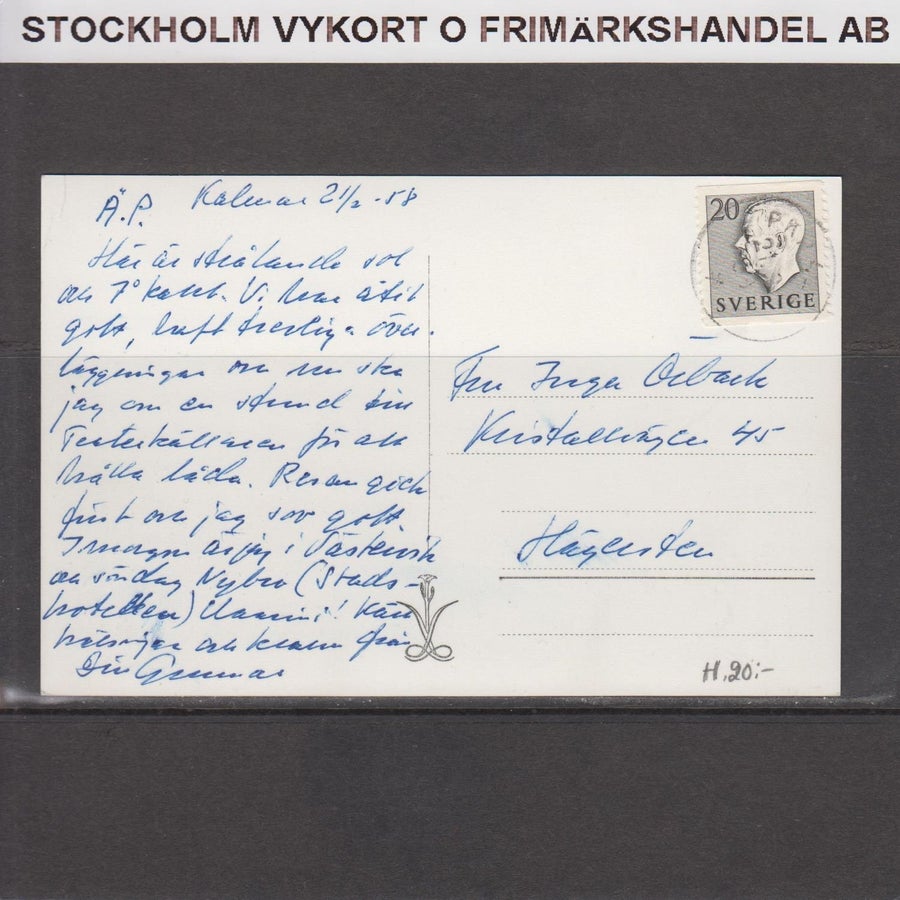 STOCKHOLM VYKORT O FRIMÄRKSHANDEL AB
Ä.P. Kalmar 21/2 -58
Här är strålande sol
och 7° kallt. Vi har ätit
gott, haft trevliga över-
läggningar och nu ska
jag om en stund till
Teaterkällaren för att
hålla låda. Resan gick
fint och jag sov gott.
I morgon är jag i Västervik
och söndag Nybro (Stads-
hotellen) Kära
hälsningar och kram från
Din Gunnar
20
SVERIGE
Fru Inga Orback
Kristallvägen 45
Hägersten
H.20:-